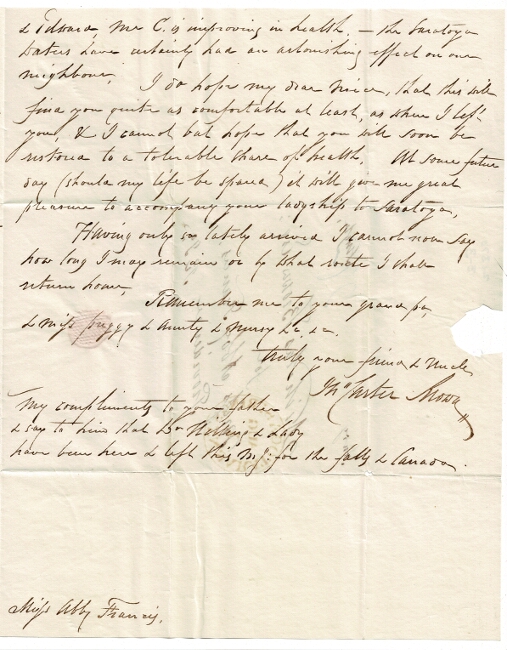 & Edward Mr C. is improving in health. – the Saratoga
waters have certainly had an astonishing effect on our
neighbour,
I do hope my dear niece, that this will
find you quite as comfortable at least, as when I left
you, & I cannot but hope that you will soon be
restored to a tolerable share of health. At some future
day (should my life be spared) it will give me great
pleasure to accompany your ladyship to Saratoga,
Having only so lately arrived I cannot now say
how long I may remain or by that route I shall
return home,
Remember me to your grandpa,
& miss peggy & aunty & nursy &c &c.
truly your friend & uncle
Jno Carter Brown
my compliments to your father
& say to him that Dr & Lady
have been here & left this mg: for the falls & Canada.
Miss Abby Francis,